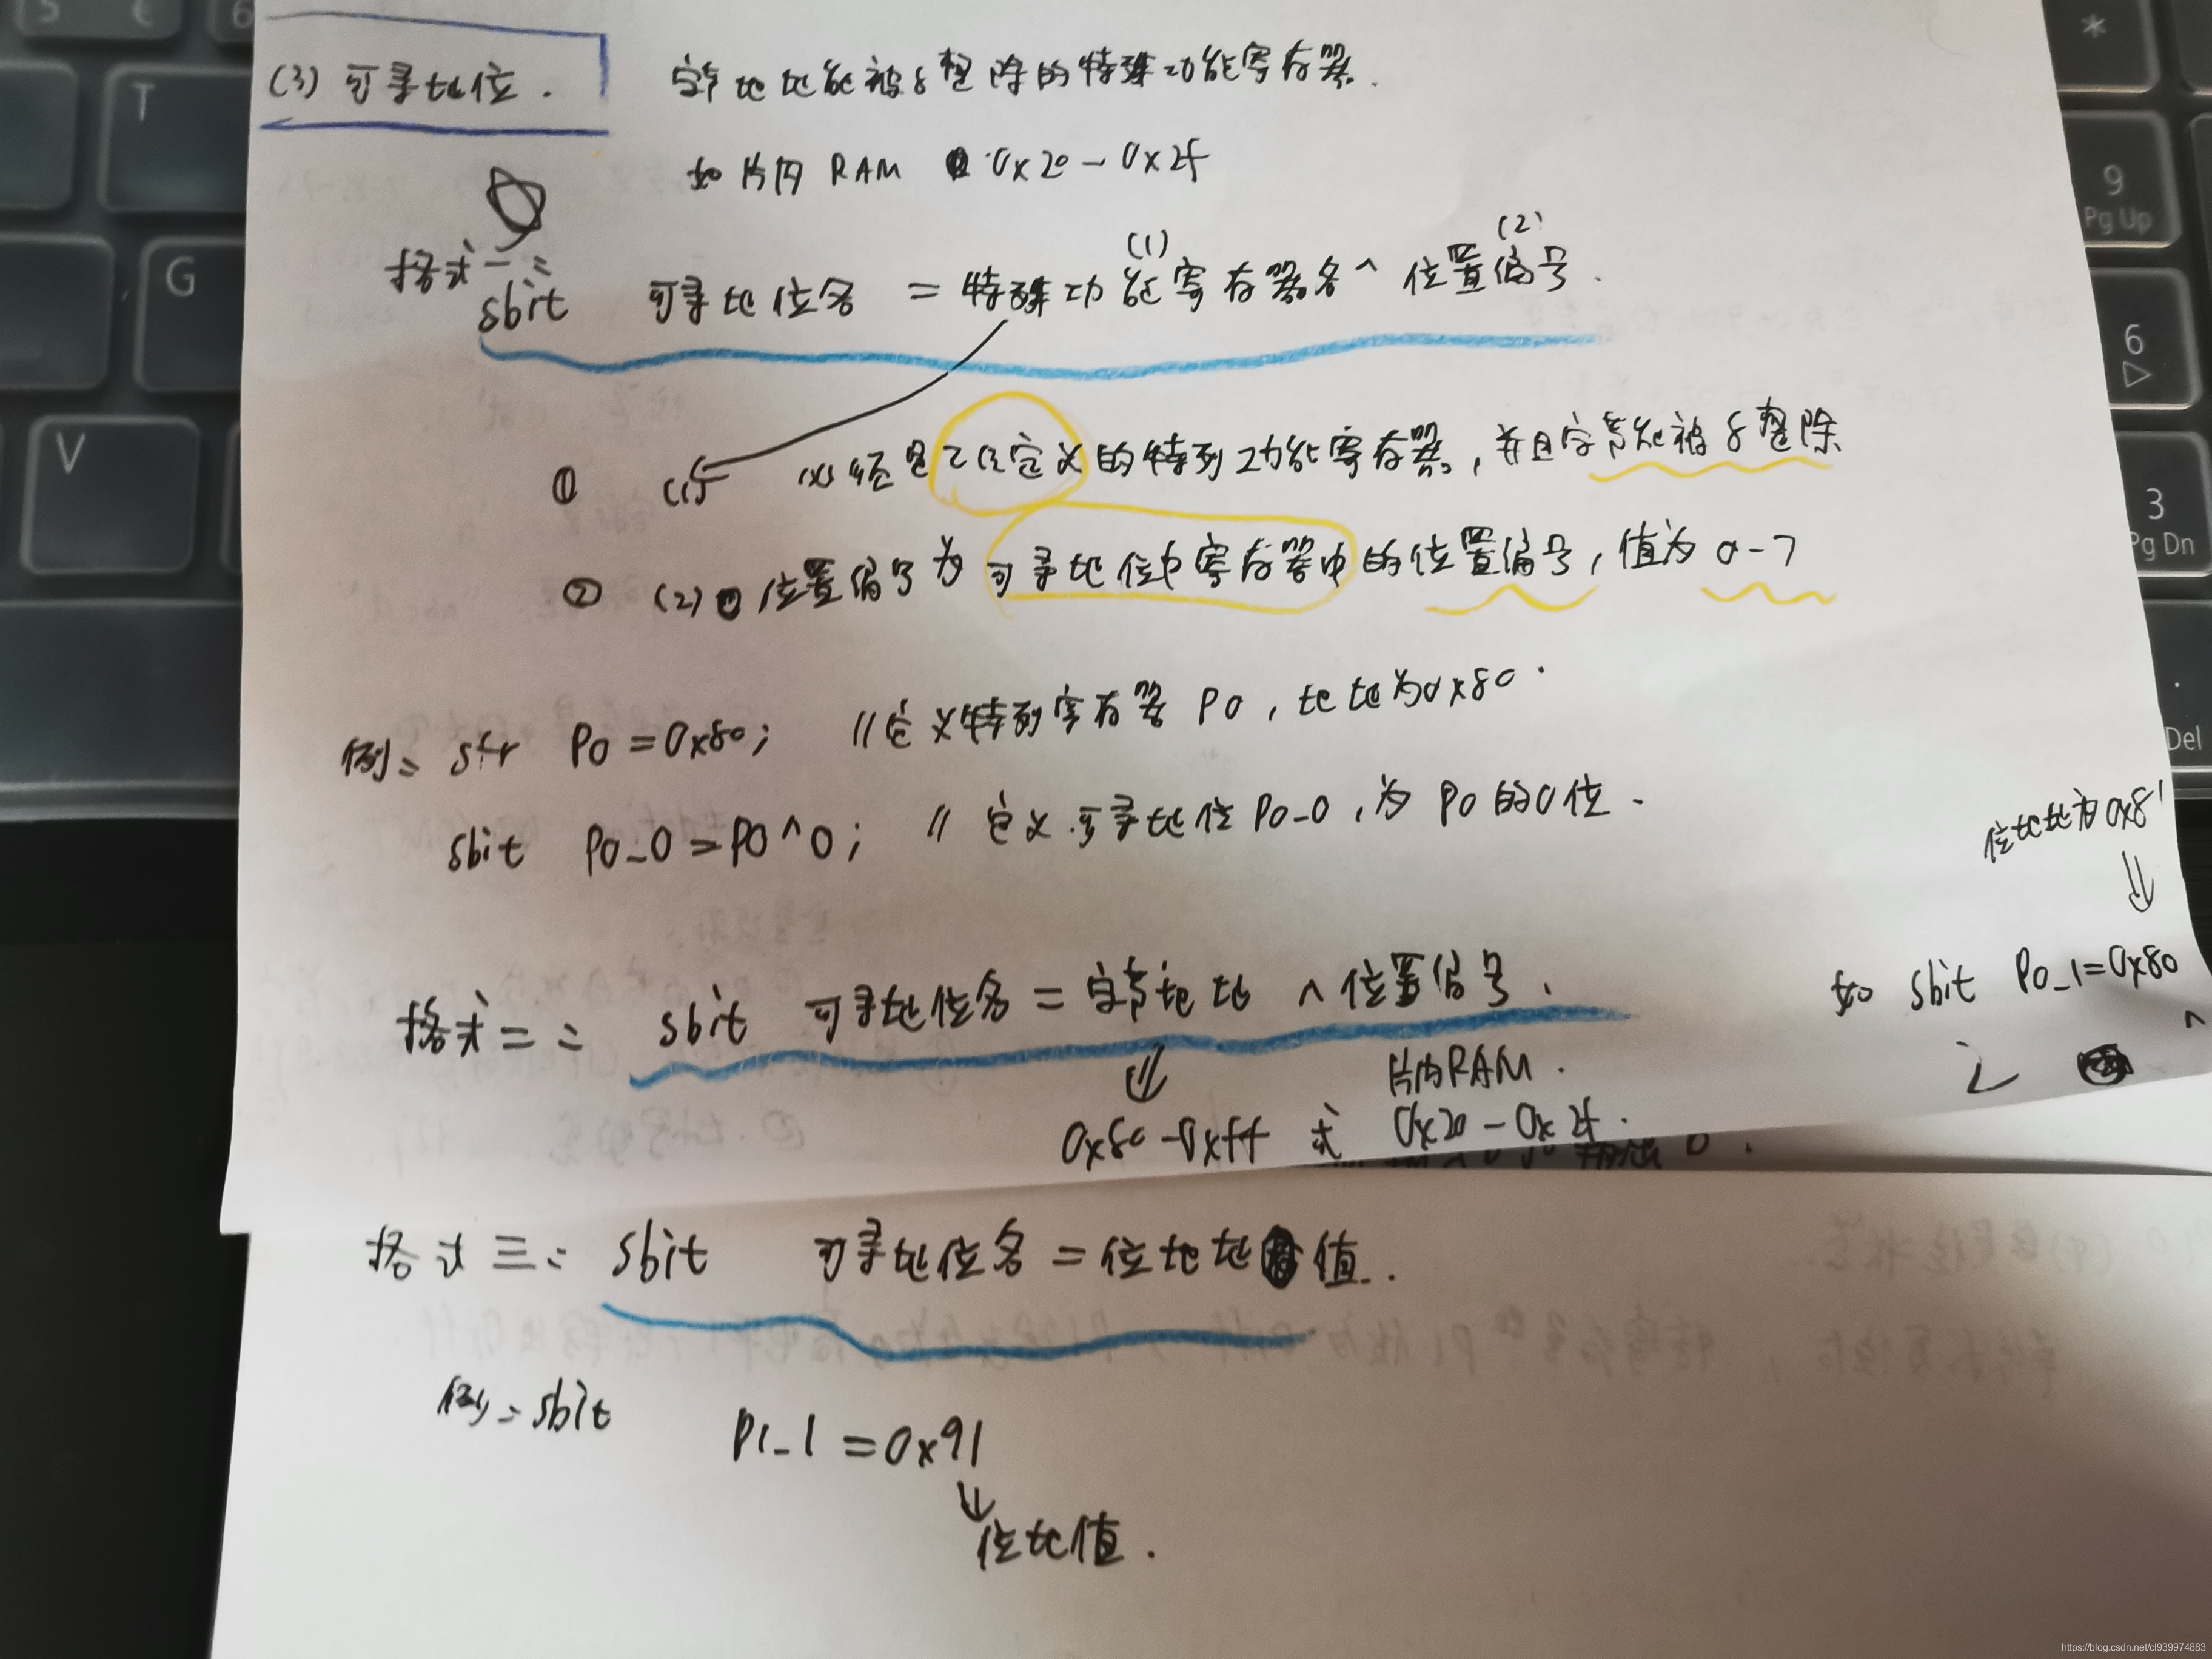 (3) 可寻址位.
字节地址能被8整除的特殊功能寄存器.
如片内 RAM 0x20-0x2f
格式一:
sbit 可寻址位名 = 特殊功能寄存器名 ^ 位置偏号.
(1) (2)
① (1) 已经定义的特殊功能寄存器,并且字节能被8整除
② (2) 位置偏号为可寻址位中寄存器中的位置偏号,值为0-7
例: sfr P0 = 0x80; //定义特别寄存器 P0,地址为0x80.
sbit P0_0 = P0^0; // 定义可寻址位 P0_0,为 P0 的0位.
位地址为0x81
⇓
如 sbit P0_1=0x80
^
格式二: sbit 可寻址位名 = 字节地址 ^ 位置偏号.
⇓ 片内RAM.
0x80-0xff 或 0x20-0x2f.
格式三: sbit 可寻址位名 = 位地址值.
例: sbit P1_1 = 0x91
↓
位址值.
T
G
V
*
9
Pg Up
6
3
Pg Dn
.
Del
https://blog.csdn.net/cl939974883